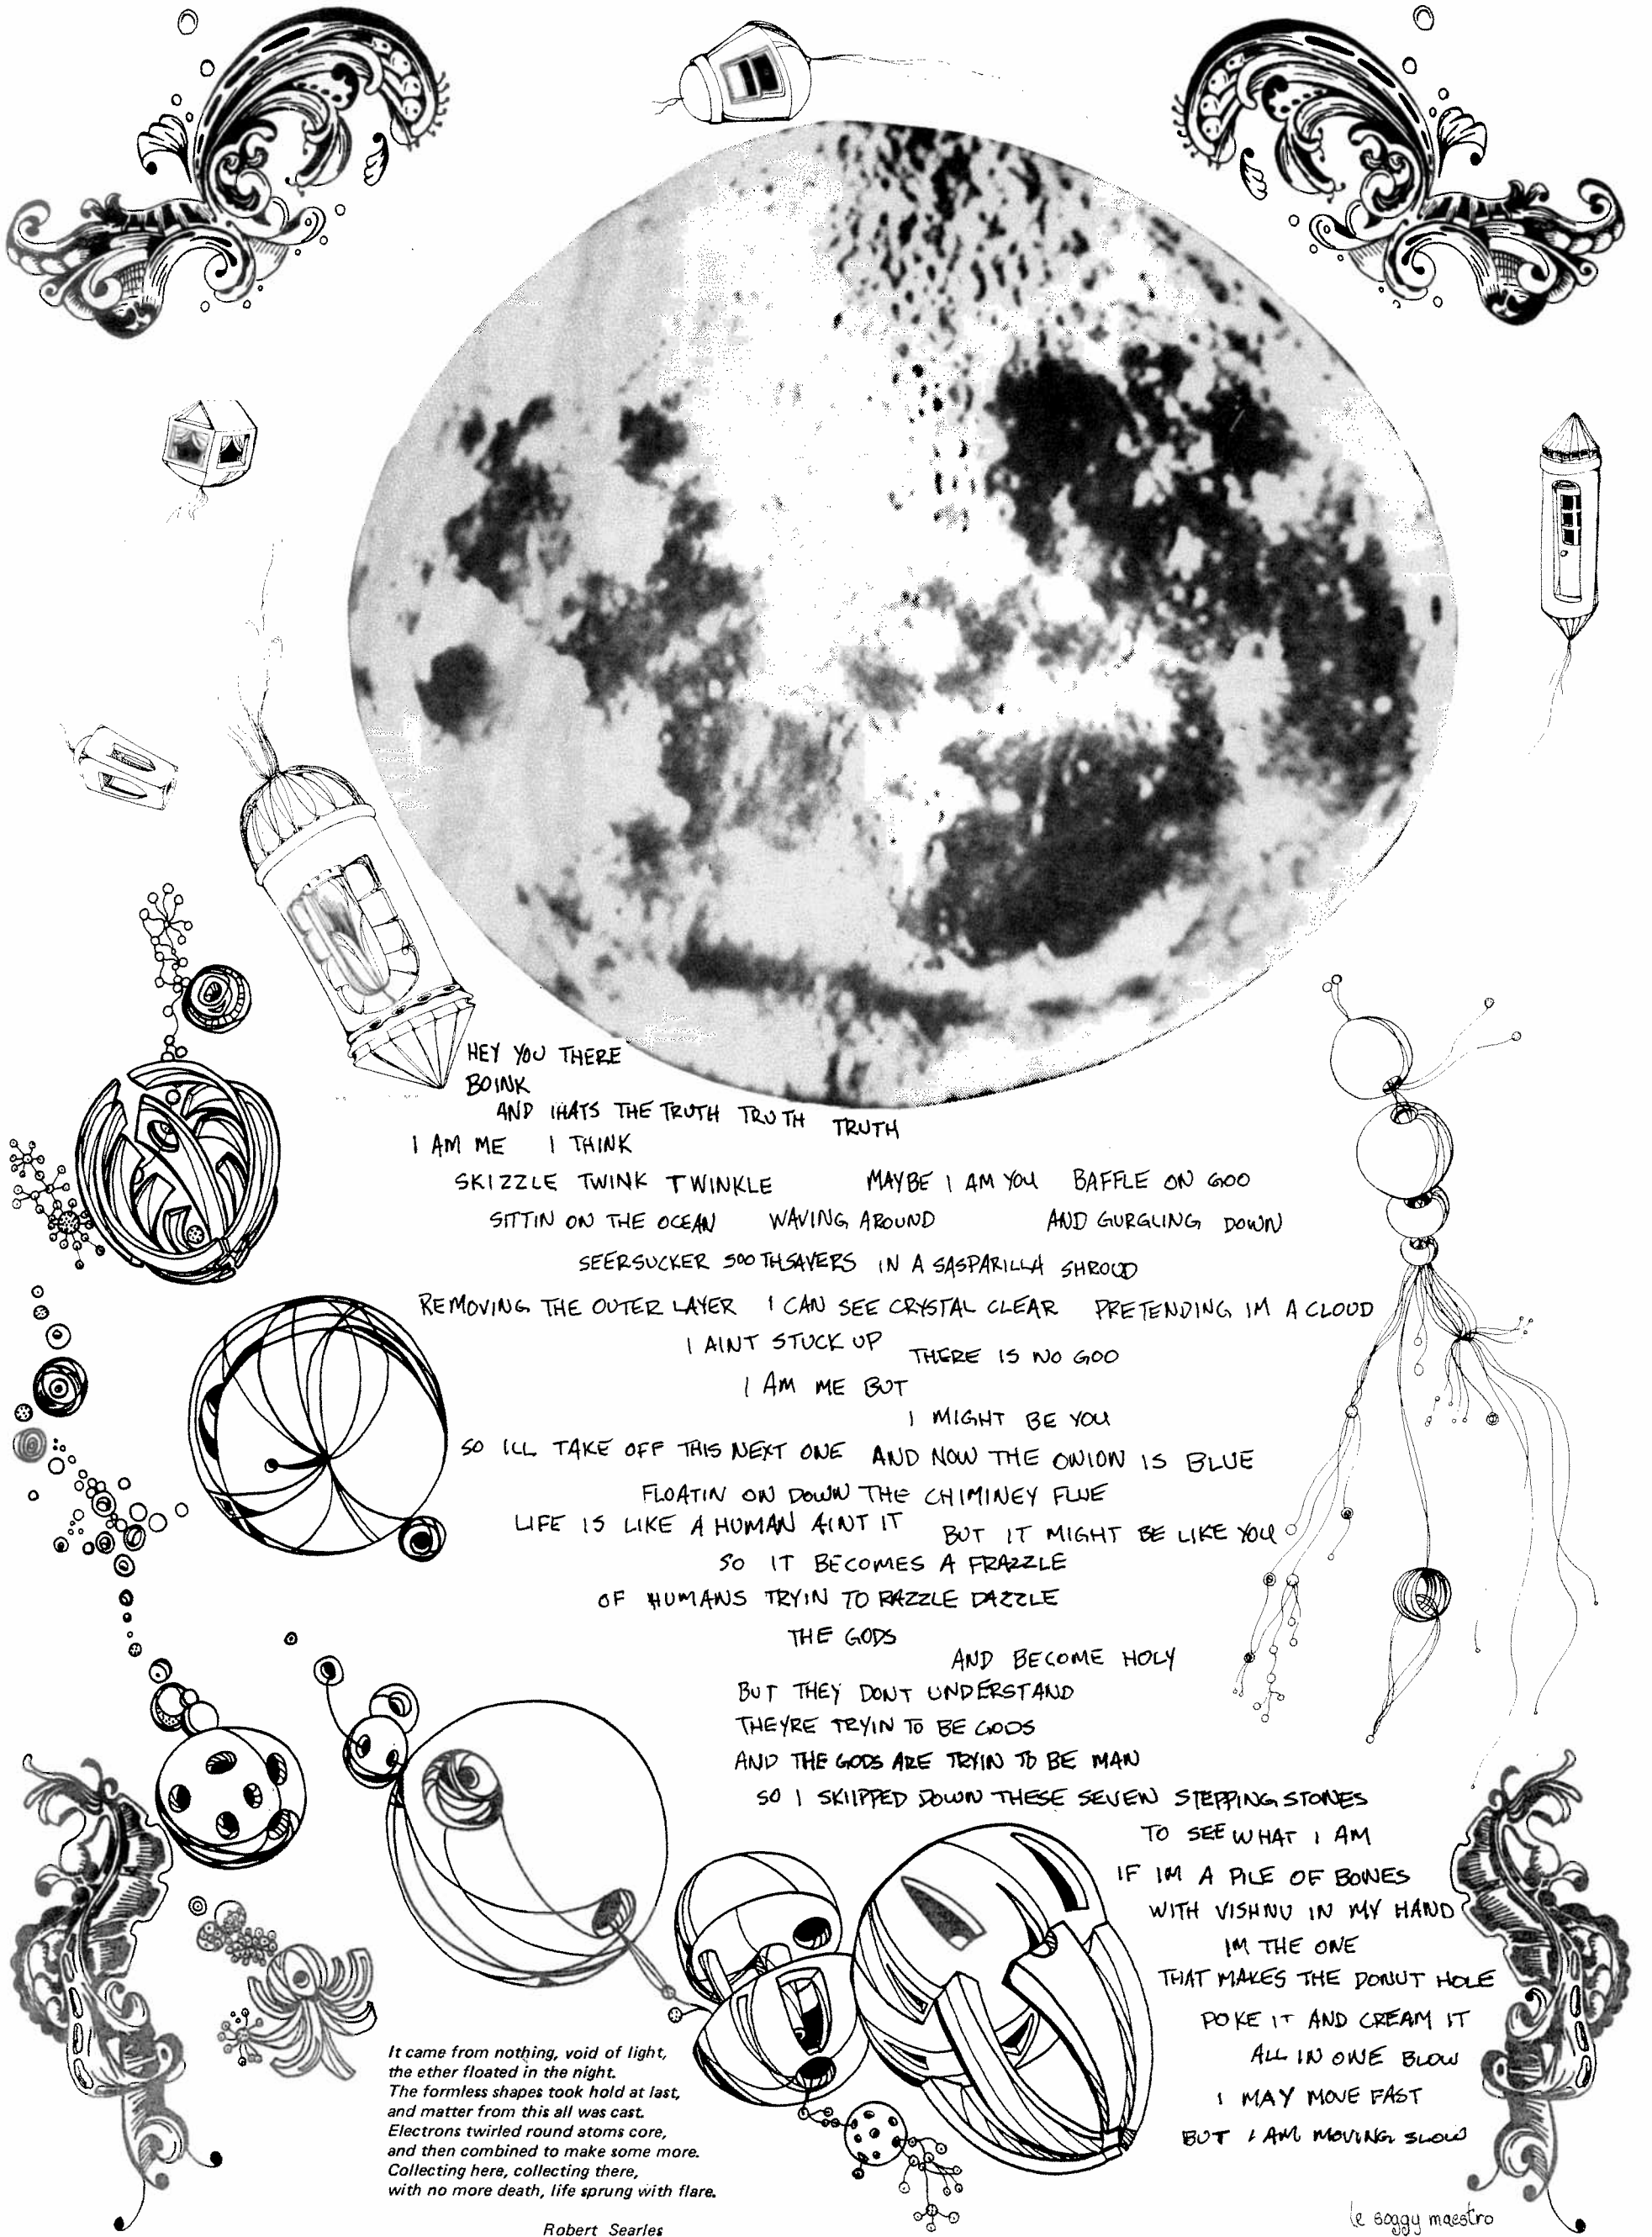 HEY YOU THERE
BOINK
AND THATS THE TRUTH TRUTH TRUTH
I AM ME I THINK
SKIZZLE TWINK TWINKLE MAYBE I AM YOU BAFFLE ON GOO
SITTIN ON THE OCEAN WAVING AROUND AND GURGLING DOWN
SEERSUCKER SOOTHSAYERS IN A SASPARILLA SHROUD
REMOVING THE OUTER LAYER I CAN SEE CRYSTAL CLEAR PRETENDING IM A CLOUD
I AINT STUCK UP THERE IS NO GOO
I AM ME BUT
I MIGHT BE YOU
SO ILL TAKE OFF THIS NEXT ONE AND NOW THE ONION IS BLUE
FLOATIN ON DOWN THE CHIMINEY FLUE
LIFE IS LIKE A HUMAN AINT IT BUT IT MIGHT BE LIKE YOU
SO IT BECOMES A FRAZZLE
OF HUMANS TRYIN TO RAZZLE DAZZLE
THE GODS
AND BECOME HOLY
BUT THEY DONT UNDERSTAND
THEYRE TRYIN TO BE GODS
AND THE GODS ARE TRYIN TO BE MAN
SO I SKIIPPED DOWN THESE SEVEN STEPPING STONES
TO SEE WHAT I AM
IF IM A PILE OF BONES
WITH VISHNU IN MY HAND
IM THE ONE
THAT MAKES THE DONUT HOLE
POKE IT AND CREAM IT
ALL IN ONE BLOW
I MAY MOVE FAST
BUT I AM MOVING SLOW
It came from nothing, void of light,
the ether floated in the night.
The formless shapes took hold at last,
and matter from this all was cast.
Electrons twirled round atoms core,
and then combined to make some more.
Collecting here, collecting there,
with no more death, life sprung with flare.
Robert Searles
le soggy maestro